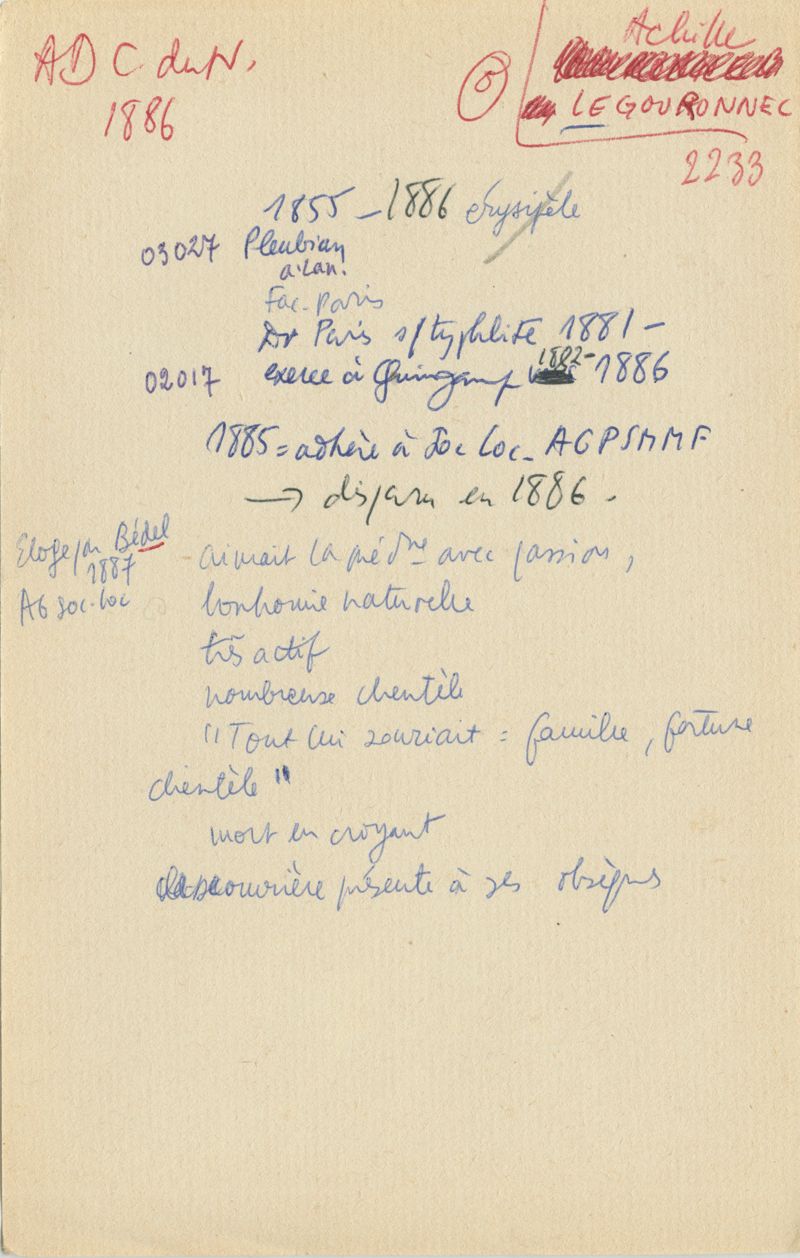 AD C du N.
1886
Achille
LEGOURONNEC
2233
1855 - 1886 érysipèle
03027 Pleubian
a. Lan.
Fac. Paris
Dr Paris s/typhlite 1881 -
02017 exerce à Guingamp 1882- 1886
1885 = adhère à Soc loc. AGPSMMF
→ disparu en 1886.
Eloge par Bédel
1887
AG soc. loc
aimait la médne avec passion,
bonhomie naturelle
très actif
nombreuse clientèle
"Tout lui souriait = famille, fortune
clientèle"
mort en croyant
ouvrière présente à ses obsèques